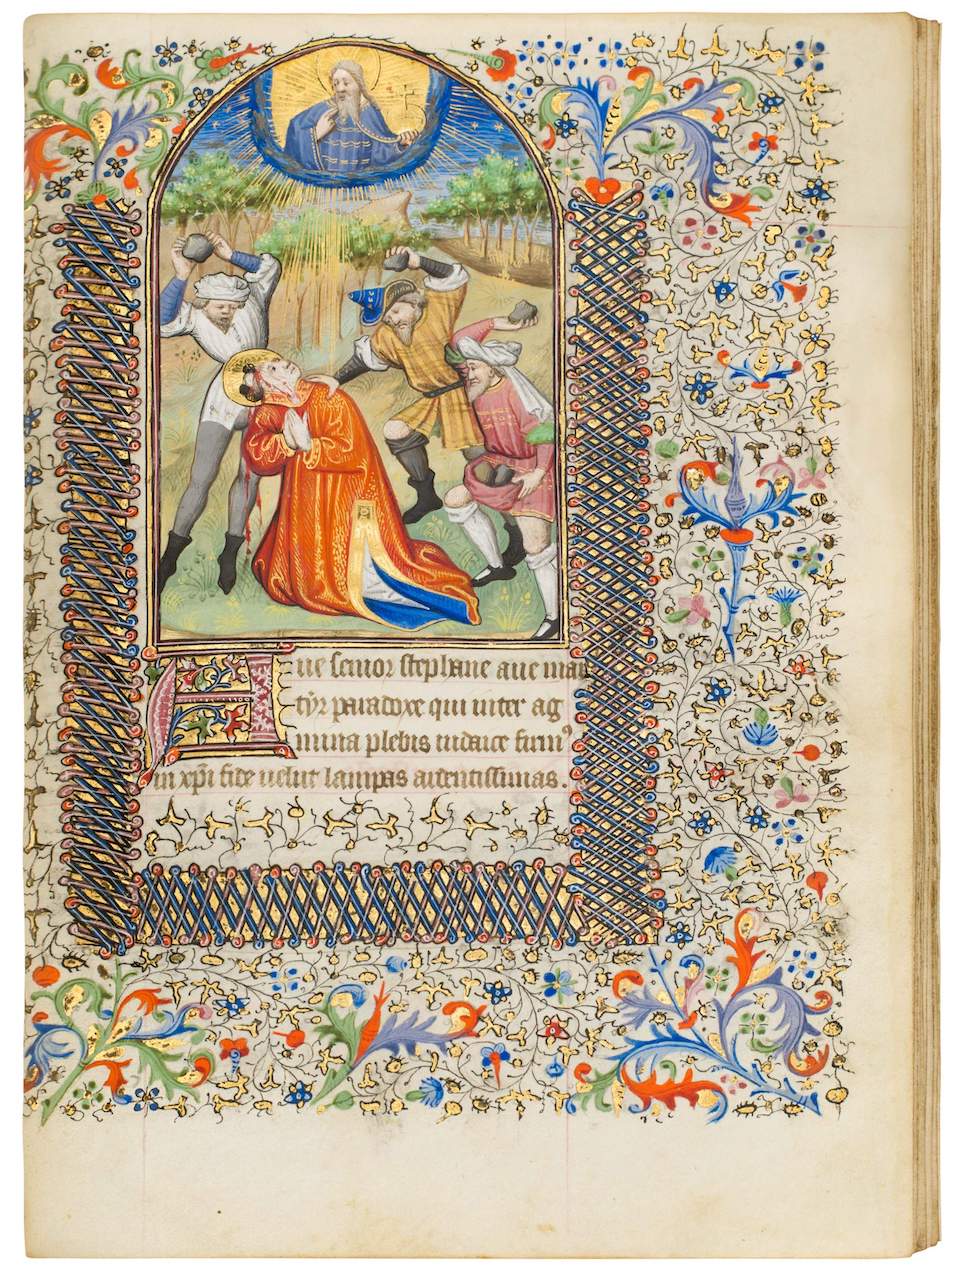 Aue senior stephane aue mar
tẏr paradoxe qui inter ag
mina plebis iudaice firmꝰ
in xp̄i fide uelut lampas ardentissimas.